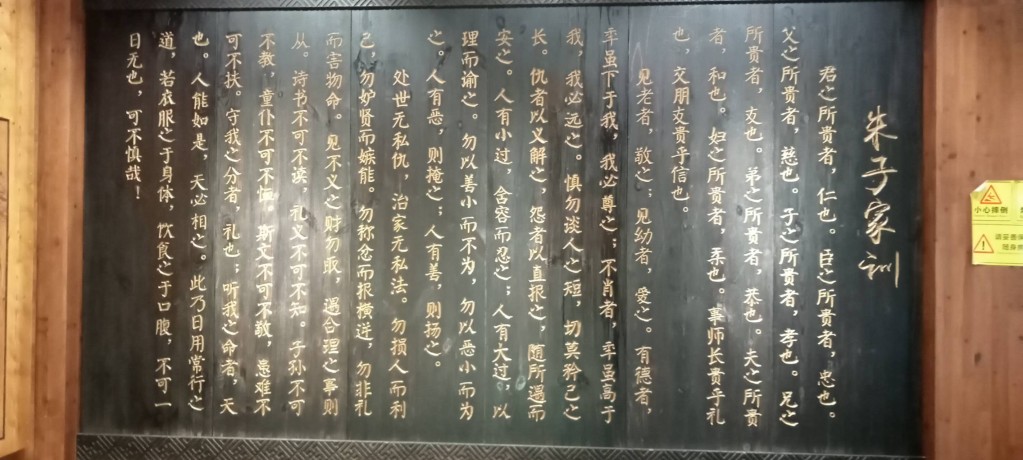 朱子家训
君之所贵者，仁也。臣之所贵者，忠也。
父之所贵者，慈也。子之所贵者，孝也。兄之
所贵者，友也。弟之所贵者，恭也。夫之所贵
者，和也。妇之所贵者，柔也。事师长贵乎礼
也，交朋友贵乎信也。
见老者，敬之；见幼者，爱之。有德者，
年虽下于我，我必尊之；不肖者，年虽高于
我，我必远之。慎勿谈人之短，切莫矜己之
长。仇者以义解之，怨者以直报之，随所遇而
安之。人有小过，含容而忍之；人有大过，以
理而谕之。勿以善小而不为，勿以恶小而为
之。人有恶，则掩之；人有善，则扬之。
处世无私仇，治家无私法。勿损人而利
己，勿妒贤而嫉能。勿称忿而报横逆，勿非礼
而害物命。见不义之财勿取，遇合理之事则
从。诗书不可不读，礼义不可不知。子孙不可
不教，童仆不可不恤。斯文不可不敬，患难不
可不扶。守我之分者，礼也；听我之命者，天
也。人能如是，天必相之。此乃日用常行之
道，若衣服之于身体，饮食之于口腹，不可一
日无也，可不慎哉！
小心撞倒